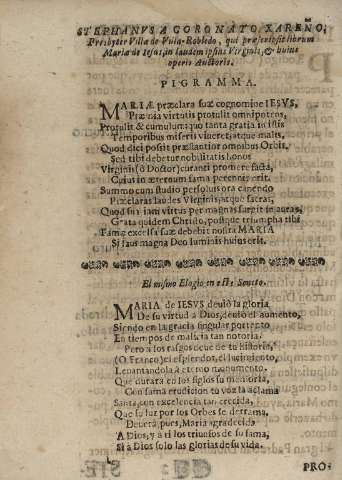 STEPHANVS A CORONATO XAREÑO,
Presbyter Villæ de Villa-Robledo, qui præ... librum
Mariæ de Iesus, in laudem ipsius Virginis, & huius
operis Auctoris.
PIGRAMMA.
MARIÆ præclara suæ cognomine IESVS,
Præmia virtutis protulit omnipotens,
Protulit & cumulum, quo tanta gratia in istis
Temporibus miseris vicerit, atque malis,
Quod dici possit præstantior omnibus Orbis.
Sed tibi debetur nobilitatis honos
Virginis (ô Doctor) curanti promere facta,
Cuius in æternum fama perennis erit.
Summo cum studio persoluis ora canendo
Præclaras laudes Virginis, atque sacras,
Quod sua iam virtus per magnas surgit in auras,
Grata quidem Christo, postque triumpha tibi
Famæ excelsa suæ debebit nostra MARIA
Si suus magna Deo luminis huius erit.
El mismo Elogio en este Soneto.
MARIA de IESVS deuiò la gloria
De su virtud à Dios, deuiò el aumento,
Siendo en la gracia singular portento
En tiempos de malicia tan notoria:
Pero à los rasgos deue de tu historia,
(O Franco) el esplendor, el lucimiento,
Leuantandola à eterno monumento,
Que durarà en los siglos su memoria,
Con fama erudicion tu voz la aclama
Santa, con excelencia tan crecida,
Que su luz por los Orbes se derrama,
Deuerà, pues, Maria agradecida
A Dios, y a ti los triunfos de su fama,
Si à Dios solo las glorias de su vida.
PRO-